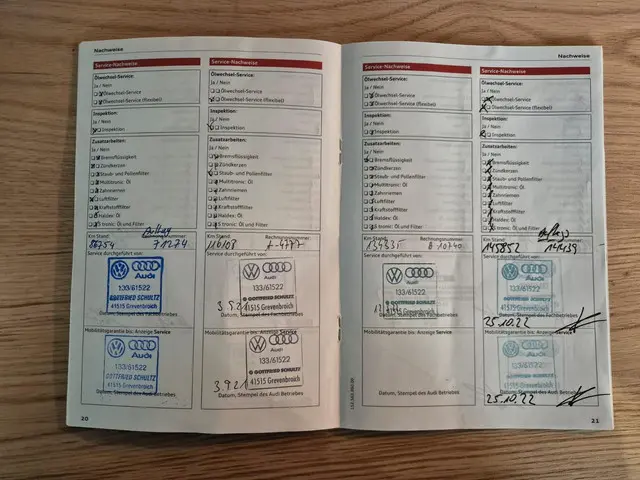 Nachweise
Service-Nachweise
Ölwechsel-Service:
Ja / Nein
Ölwechsel-Service
Ölwechsel-Service (flexibel)
Inspektion:
Ja / Nein
Inspektion
Zusatzarbeiten:
Ja / Nein
Bremsflüssigkeit
Zündkerzen
Staub- und Pollenfilter
Multitronic: Öl
Zahnriemen
Luftfilter
Kraftstofffilter
Haldex: Öl
S tronic: Öl und Filter
Km Stand:
71274
Service durchgeführt von:
Audi
133/61522
GOTTFRIED SCHULTZ
41515 Grevenbroich
Datum, Stempel des Fachbetriebes
Mobilitätsgarantie bis: Anzeige Service
Audi
133/61522
GOTTFRIED SCHULTZ
41515 Grevenbroich
Datum, Stempel des Audi Betriebes
20
Service-Nachweise
Ölwechsel-Service:
Ja / Nein
Ölwechsel-Service
Ölwechsel-Service (flexibel)
Inspektion:
Ja / Nein
Inspektion
Zusatzarbeiten:
Ja / Nein
Bremsflüssigkeit
Zündkerzen
Staub- und Pollenfilter
Multitronic: Öl
Zahnriemen
Luftfilter
Kraftstofffilter
Haldex: Öl
S tronic: Öl und Filter
Km Stand: Rechnungsnummer:
116108
Service durchgeführt von:
Audi
133/61522
GOTTFRIED SCHULTZ
41515 Grevenbroich
3.9.21
Datum, Stempel des Fachbetriebes
Mobilitätsgarantie bis: Anzeige Service
Audi
133/61522
GOTTFRIED SCHULTZ
41515 Grevenbroich
3.9.21
Datum, Stempel des Audi Betriebes
Nachweise
Service-Nachweise
Ölwechsel-Service:
Ja / Nein
Ölwechsel-Service
Ölwechsel-Service (flexibel)
Inspektion:
Ja / Nein
Inspektion
Zusatzarbeiten:
Ja / Nein
Bremsflüssigkeit
Zündkerzen
Staub- und Pollenfilter
Multitronic: Öl
Zahnriemen
Luftfilter
Kraftstofffilter
Haldex: Öl
S tronic: Öl und Filter
Km Stand: Rechnungsnummer:
10740
Service durchgeführt von:
Audi
133/61522
GOTTFRIED SCHULTZ
Datum, Stempel des Fachbetriebes
Mobilitätsgarantie bis: Anzeige Service
Datum, Stempel des Audi Betriebes
Service-Nachweise
Ölwechsel-Service:
Ja / Nein
Ölwechsel-Service
Ölwechsel-Service (flexibel)
Inspektion:
Ja / Nein
Inspektion
Zusatzarbeiten:
Ja / Nein
Bremsflüssigkeit
Zündkerzen
Staub- und Pollenfilter
Multitronic: Öl
Zahnriemen
Luftfilter
Kraftstofffilter
Haldex: Öl
S tronic: Öl und Filter
Km Stand:
145852 144439
Service durchgeführt von:
Audi
133/61522
GOTTFRIED SCHULTZ
41515 Grevenbroich
25.10.22
Datum, Stempel des Fachbetriebes
Mobilitätsgarantie bis: Anzeige Service
Audi
133/61522
GOTTFRIED SCHULTZ
41515 Grevenbroich
25.10.22
Datum, Stempel des Audi Betriebes
21